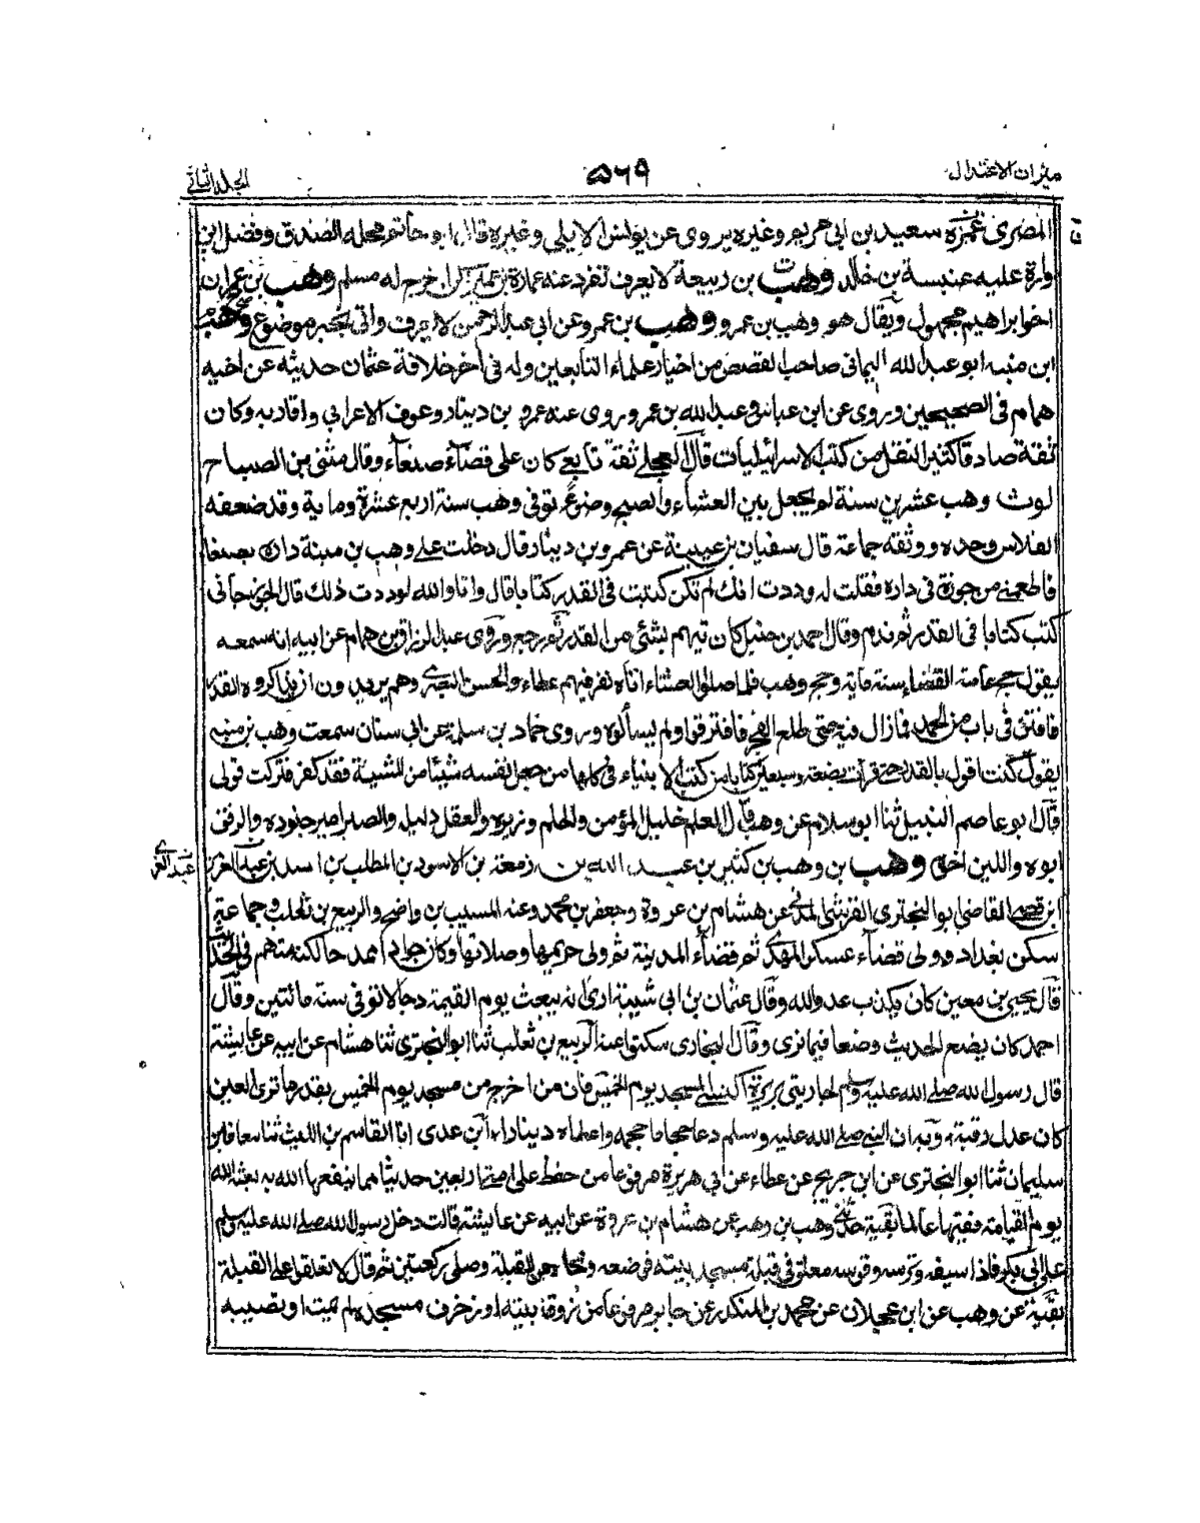 ميزان الاعتدال ۵۶۹ الجلد الثانى
المصرى غمزه سعيد بن ابى مريم وغيره يروى عن يونس الايلى وغيره قال ابو حاتم محله الصدق وفضل ابن
وارة عليه عنبسة بن خالد وهب بن ربيعة لا يعرف تفرد عنه عمارة بن عمير اخرج له مسلم وهب بن عمران
اخو ابراهيم مجهول ويقال هو وهب بن عمرو وهب بن عمرو عن ابى عبد الرحمن لا يعرف واتى بخبر موضوع وهب
ابن منبه ابو عبد الله اليمانى صاحب القصص من اخيار علماء التابعين وله فى آخر خلافة عثمان حديثه عن اخيه
همام فى الصحيحين وروى عن ابن عباس وعبد الله بن عمرو روى عنه عمرو بن دينار وعوف الاعرابى واقاربه وكان
ثقة صادقا كثير النقل من كتب الاسرائيليات قال العجلے ثقة تابعے كان على قضاء صنعاء وقال مثنى بن الصباح
لوث وهب عشرين سنة لم يجعل بين العشاء والصبح وضوءً توفى وهب سنة اربع عشرة ومایة وقد ضعفه
الفلاس وحده ووثقه جماعة قال سفيان بن عيينة عن عمرو بن دينار قال دخلت على وهب بن منبه داره بصنعا
فاطعمنے من جوزة فى داره فقلت له وددت انك لم تكن كتبت فى القدر كتابا قال وانا والله لوددت ذلك قال الجوزجانى
كتب كتابا فى القدر ثم ندم وقال احمد بن حنبل كان تيهم بشئى من القدر ثم رجع وروى عبد الرزاق بن همام عن ابيه انه سمعه
يقول حج عامة الفقهاء سنة ماية وحج وهب فلما صلوا العشاء اتاه نفر فيهم عطاء والحسن البصرى وهم يريدون ان يذاكروه القدر
فافتن فى باب من الحمد فما زال فيه حتى طلع الفجر فافترقوا ولم يسألوه وروى حماد بن سلمة عن ابى سنان سمعت وهب بن منبه
يقول كنت اقول بالقدر حتى قرأت بضعة وسبعين كتابا من كتب الانبياء فى كلها من جعل لنفسه شيئا من المشيئة فقد كفر فتركت قولى
قال ابو عاصم النبيل ثنا ابو سلام عن وهب قال العلم خليل المؤمن والحلم وزيره والعقل دليله والصبر امير جنوده والرفق
ابوه واللين اخوه وهب بن وهب بن كثير بن عبد الله بن زمعة بن الاسود بن المطلب بن اسد بن عبد العزيز عبد العزى
ابن قصے القاضى ابو البخترى القرشى المدنى عن هشام بن عروة وجعفر بن محمد وعنه المسيب بن واضح والربيع بن ثعلب وجماعة
سكن بغداد وولى قضاء عسكر المهدى ثم قضاء المدينة ثم ولى حربها وصلاتها وكان جوادا ممدحا لكنه متهم فى الحديث
قال يحيى بن معين كان يكذب عدو الله وقال عثمان بن ابى شيبة ارى انه يبعث يوم القيمة دجالا توفى سنة مائتين وقال
احمد كان يضع الحديث وضعا فيما نرى وقال البخارى سكتوا عنه الربيع بن ثعلب ثنا ابو البخترى ثنا هشام عن ابيه عن عايشة
قال رسول الله صلے الله عليه وسلم لجاريتى بريرة اكنسى المسجد يوم الخميس فان من اخرج من مسجد يوم الخميس بقدر ما ترى العين
كان عدل رقبة وبه ان النبے صلے الله عليه وسلم دعا حجاما حجمه واعطاه دينارا ابن عدى انا القاسم بن الليث ثنا معافا بن
سليمان ثنا ابو البخترى عن ابن جريج عن عطاء عن ابى هريرة مرفوعا من حفظ على امتے اربعين حديثا مما ينفعها الله به بعثه الله
يوم القيامة فقيها عالما بقية حدثنى وهب بن وهب عن هشام بن عروة عن ابيه عن عايشة قالت دخل رسول الله صلے الله عليه وسلم
على ابى بكر فاذا سيفه وترسه وقوسه معلق فى قبلة مسجد بيته فوضعه ونحاه عن القبلة وصلى ركعتين ثم قال لا تعلقوا على القبلة
بقية عن وهب عن ابن عجلان عن محمد بن المنكدر عن جابر مرفوعا من زوق بيته او زخرف مسجده لم يمت او تصيبه